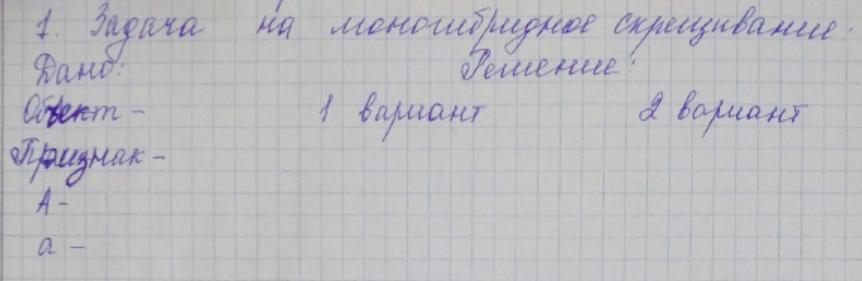 1. Задача на моногибридное скрещивание.
Дано: Решение:
Объект - 1 вариант 2 вариант
Признак -
А -
а -